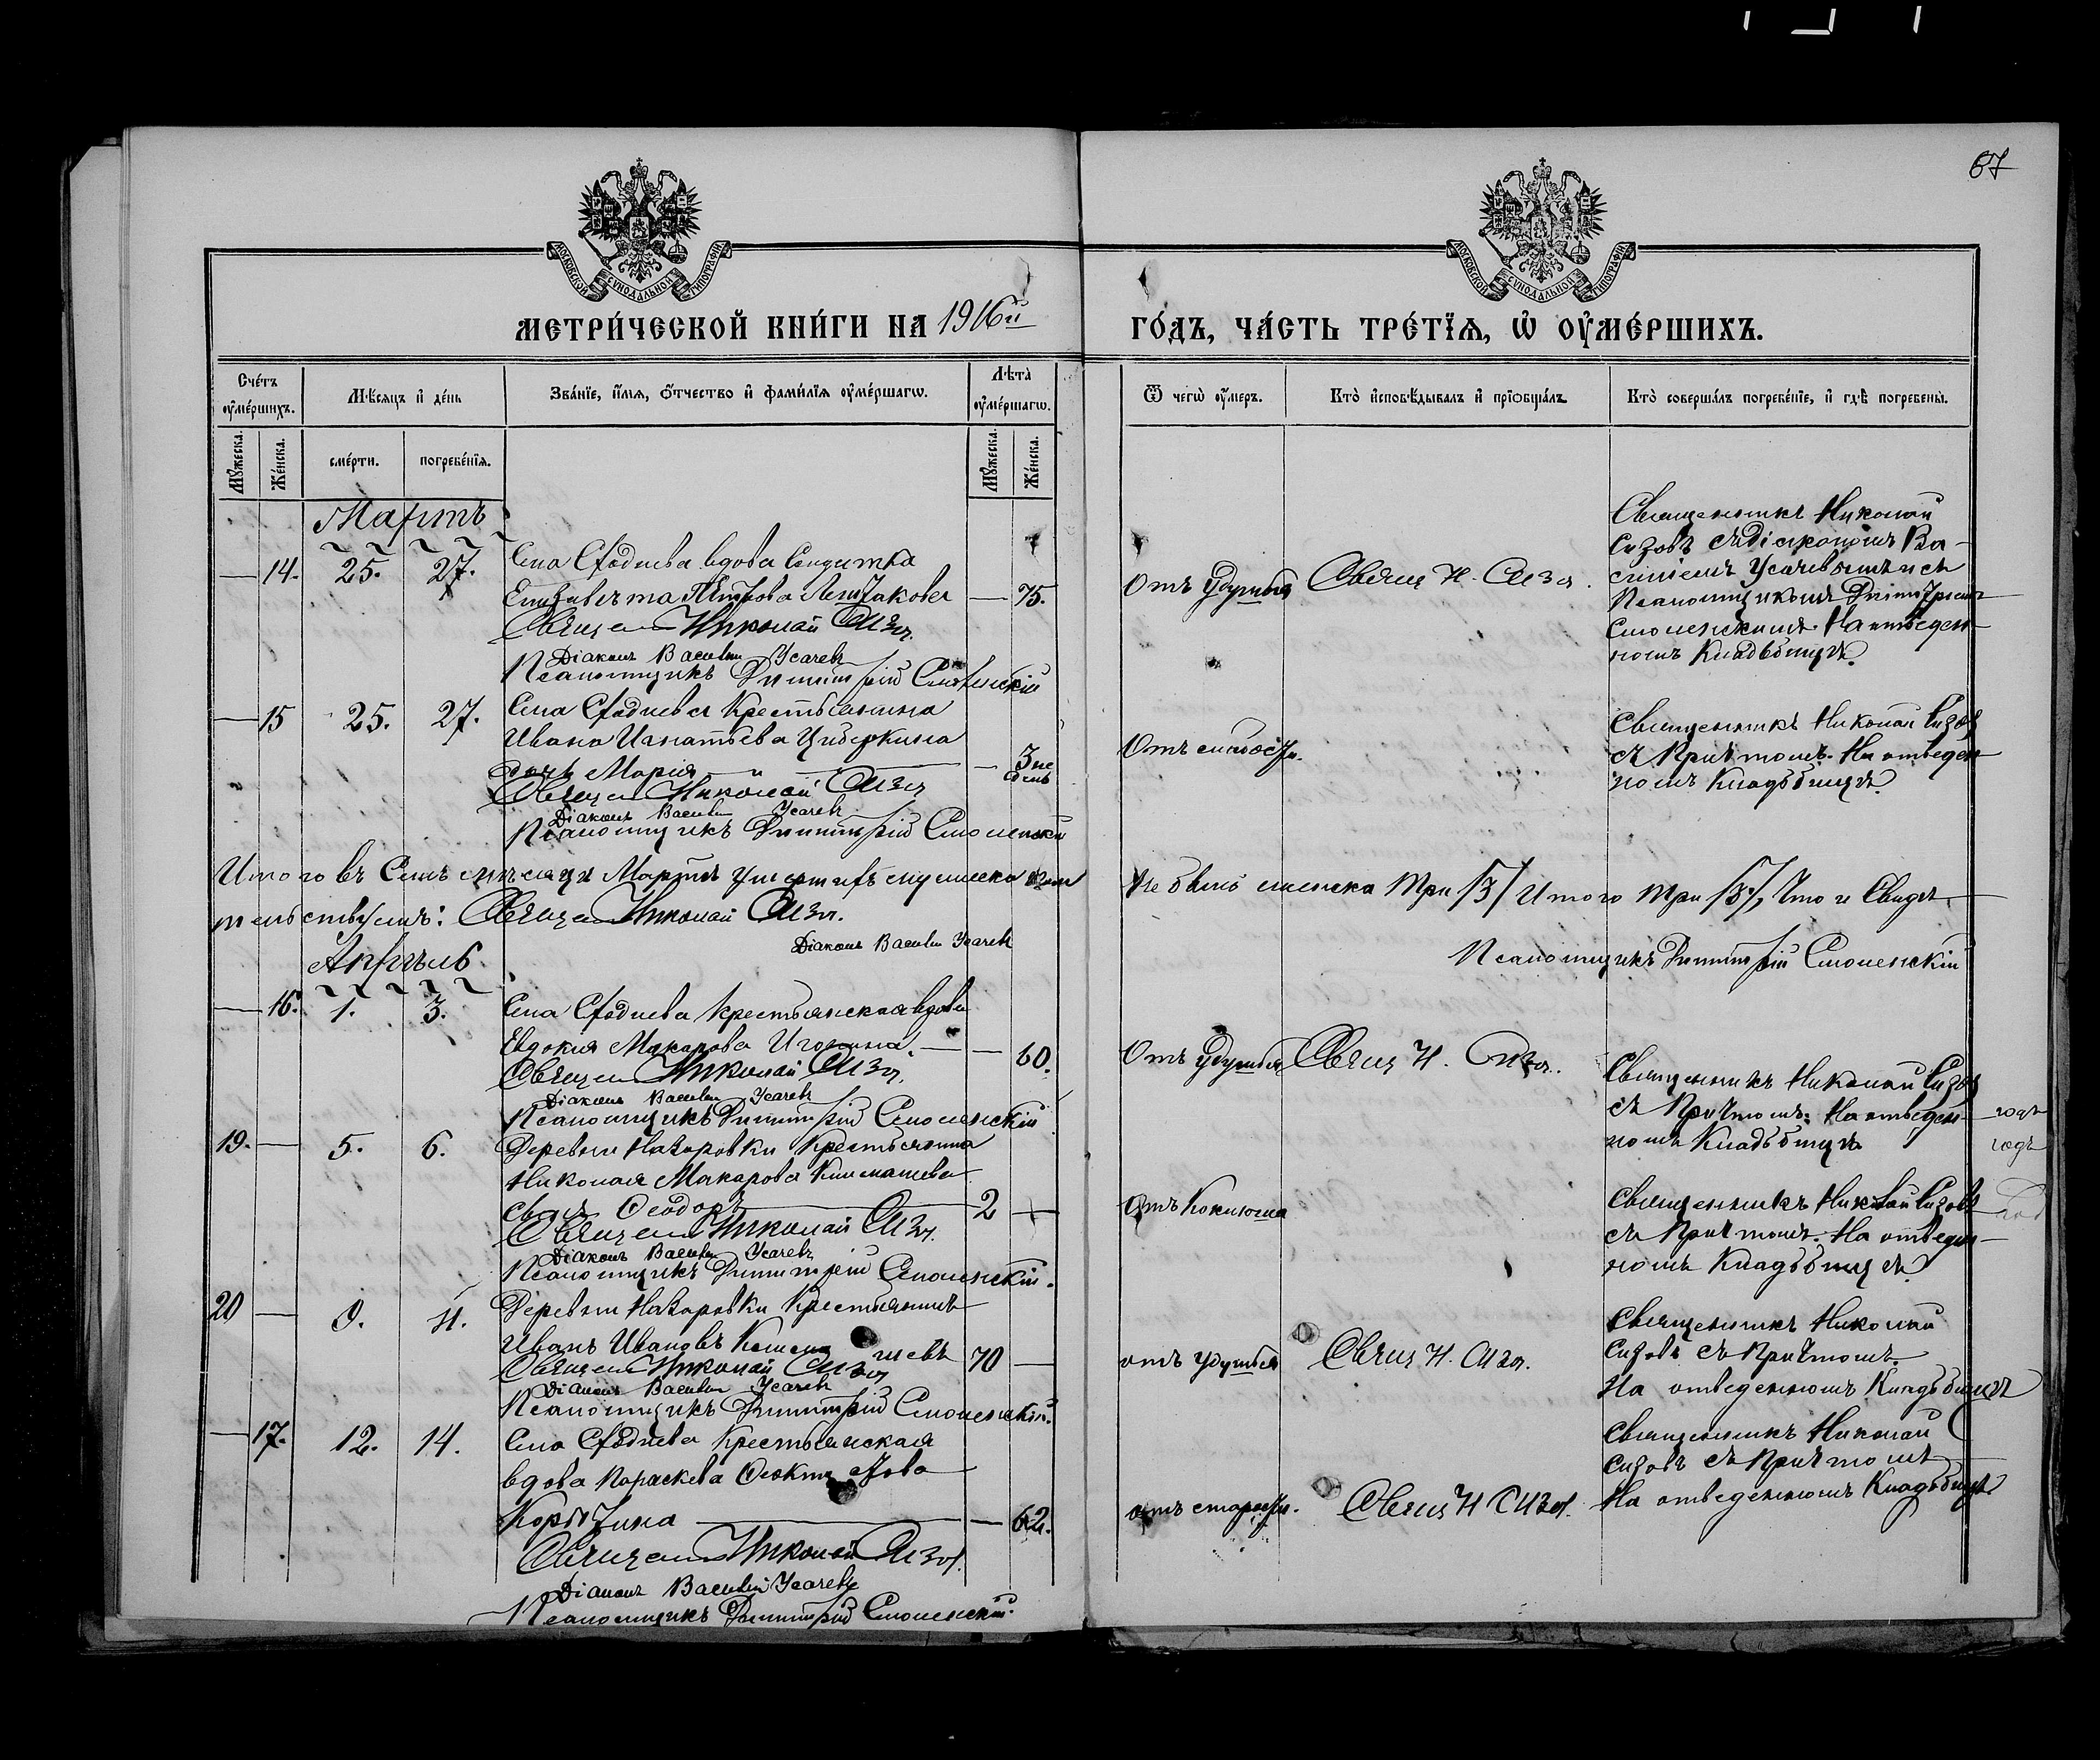 67
МОСКОВСКОЙ СѴНОДАЛЬНОЙ ТИПОГРАФІИ
МОСКОВСКОЙ СѴНОДАЛЬНОЙ ТИПОГРАФІИ
МЕТРИ́ЧЕСКОЙ КНИ́ГИ НА 1916й
ГО́ДЪ, ЧА́СТЬ ТРЕ́ТЇѦ, Ѡ҆ ОУ҆МЕ́РШИХЪ.
Сче́тъ оу҆ме́ршихъ.
Мѣ́сѧцъ и҆ де́нь
Зва́нїе, и҆́мѧ, ѻ҆́тчество и҆ фами́лїѧ оу҆ме́ршагѡ.
Лѣ́та̀ оу҆ме́ршагѡ.
Ѿ чегѡ̀ оу҆́меръ.
Кто̀ и҆сповѣ́дывалъ и҆ прїѡбща́лъ.
Кто̀ соверша́лъ погребе́нїе, и҆ гдѣ̀ погребены̀.
Мꙋ́жеска.
Же́нска.
сме́рти.
погребе́нїѧ.
Мꙋ́жеска.
Же́нска.
Мартъ
— 14. 25. 27. Села вдова Солдатка
Елизавета Петрова — 75.
Священ Николай Сизов
Діаконъ Василій Усачевъ
Псаломщикъ Димитрій Смоленскій
Отъ удушья Свящ Н. Сизов.
Священникъ Николай
Сизовъ съ Діакономъ Ва-
силіемъ Усачевымъ и съ
Псаломщикомъ Димитріемъ
Смоленскимъ. На отведен-
номъ Кладбищѣ.
— 15 25. 27. Села Крестьянина
Ивана Игнатьева Циберкина
дочь Марія — 3 не
дѣль
Священ Николай Сизов
Діаконъ Василій Усачевъ
Псаломщикъ Димитрій Смоленскій
Отъ слабости.
Священникъ Николай Сизовъ
съ Причтомъ. На отведен
номъ Кладбищѣ.
Итого въ Семъ мѣсяцѣ Мартѣ умершихъ мужеска пола
не было женска три /3/ Итого три /3/, Что и Свидѣ-
тельствуемъ: Священ Николай Сизов.
Діаконъ Василій Усачевъ
Псаломщикъ Димитрій Смоленскій
Апрѣль
— 16. 1. 3. Села крестьянская вдова
Евдокия Макарова — 60.
Священ Николай Сизов.
Діаконъ Василій Усачевъ
Псаломщикъ Димитрій Смоленскій
Отъ удушья Свящ Н. Сизов.
Священникъ Николай Сизовъ
съ Причтомъ. На отведен-
номъ Кладбищѣ
годъ
годъ
19. — 5. 6. Деревни Назаровки Крестьянина
Николая Макарова
сынъ Ѳеодоръ 2 —
Священ Николай Сизов.
Діаконъ Василій Усачевъ
Псаломщикъ Димитрій Смоленскій.
Отъ Коклюша
Священникъ Николай Сизовъ
съ Причтомъ. На отведен-
номъ Кладбищѣ.
20 — 9. 11. Деревни Назаровки Крестьянинъ
Иванъ Ивановъ 70 —
Священ Николай Сизов
Діаконъ Василій Усачевъ
Псаломщикъ Димитрій Смоленскій.
отъ удушья Свящ Н. Сизов.
Священникъ Николай
Сизовъ съ Причтомъ.
На отведенномъ Кладбищѣ
— 17. 12. 14. Села Крестьянская
вдова Параскева Ѳеоктистова
— 62.
Священ Николай Сизов.
Діаконъ Василій Усачевъ
Псаломщикъ Димитрій Смоленскій.
отъ старости. Свящ Н Сизов.
Священникъ Николай
Сизовъ съ Причтомъ
На отведенномъ Кладбищѣ